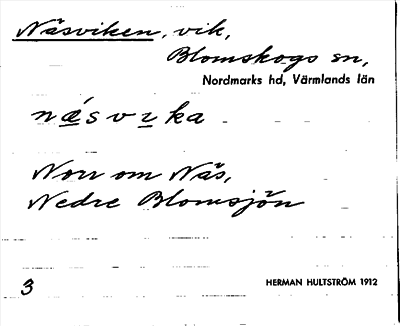 Näsviken, vik,
Blomskogs sn,
Nordmarks hd, Värmlands län
næ´svɪka
Norr om Näs,
Nedre Blomsjön
3
HERMAN HULTSTRÖM 1912